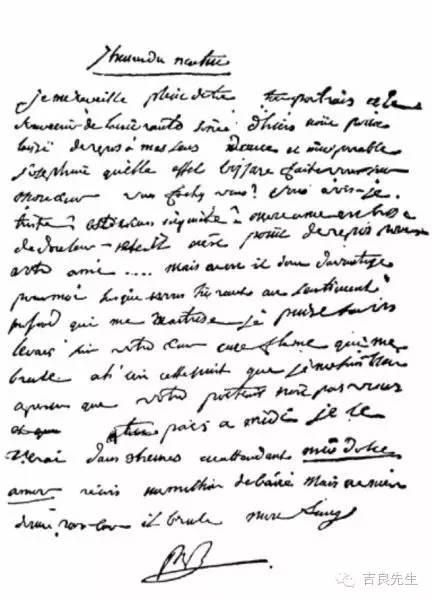 7 heures du matin
je me reveille plein de toi ton portrait et le
souvenir de soirée d'hiers n'ont point
laissé de repos à mes sens douce et incomparable
josephine quelle effet bizzare faite vous sur
mon cœur vous fachez vous? vous vois-je
triste? etes vous inquiete? mon ame est brisé
de douleur et il n'est point de repos pour
votre ami .... mais en est il donc davantage
pour moi lorsque vous livrant au sentiment
profond qui me maitrise je puise sur vos
levres sur votre cœur une flame qui me
brule ah! c'est cette nuit que je me suis bien
apercu que votre portrait n'est pas vous
tu pars a midi je te
verai dans 3 heures en attendant mio dolce
amor recois un millier de baisé mais ne m'en
donne pas car il brule mon sang
B
吉良先生